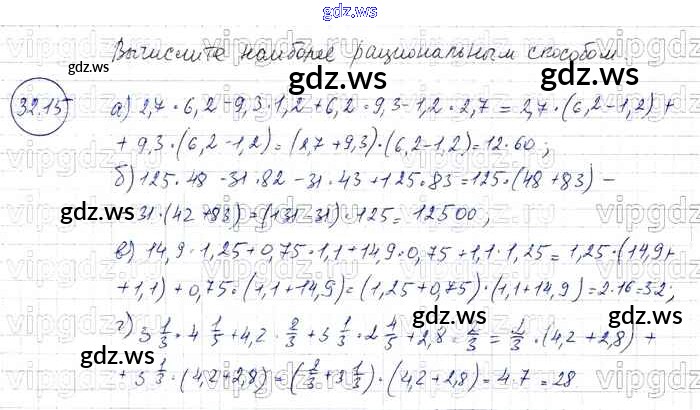 gdz.ws
Вычислите наиболее рациональным способом.
gdz.ws
gdz.ws
32.15
а) 2,7 · 6,2 - 9,3 · 1,2 + 6,2 · 9,3 - 1,2 · 2,7 = 2,7 · (6,2 - 1,2) +
+ 9,3 · (6,2 - 1,2) = (2,7 + 9,3) · (6,2 - 1,2) = 12 · 60;
б) 125 · 48 - 31 · 82 - 31 · 43 + 125 · 83 = 125 · (48 + 83) -
gdz.ws
gdz.ws
31 · (42 + 83) = (131 - 31) · 125 = 12500;
в) 14,9 · 1,25 + 0,75 · 1,1 + 14,9 · 0,75 + 1,1 · 1,25 = 1,25 · (14,9 +
+ 1,1) + 0,75 · (1,1 + 14,9) = (1,25 + 0,75) · (1,1 + 14,9) = 2 · 16 = 32;
г) 3 1/3 · 4 1/5 + 4,2 · 2/3 + 3 1/3 · 2 4/5 + 2,8 · 2/3 = 2/3 · (4,2 + 2,8) +
gdz.ws
gdz.ws
+ 3 1/3 · (4,2 + 2,8) = (2/3 + 3 1/3) · (4,2 + 2,8) = 4 · 7 = 28
gdz.ws